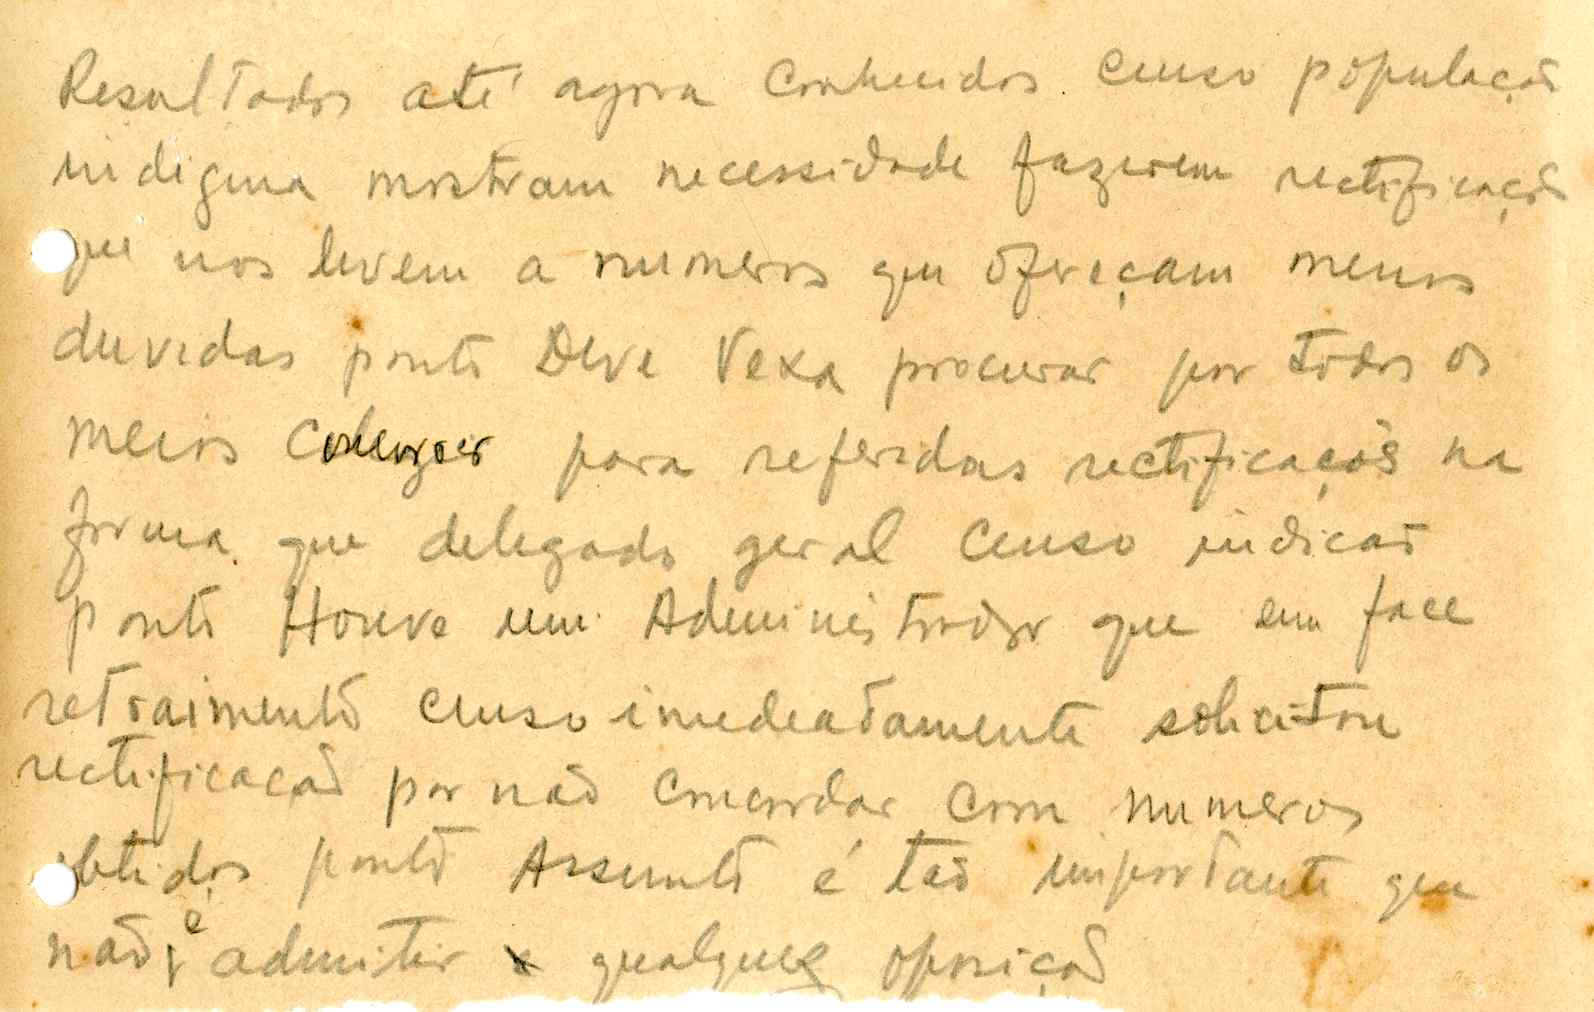 Resultados até agora conhecidos censo população
indigena mostram necessidade fazerem rectificação
que nos levem a numeros que ofereçam menos
duvidas ponto Deve Vexa procurar por todos os
meios para referidas rectificações na
forma que delegado geral censo indicar
ponto Houve um Administrador que em face
retraimento censo imediatamente solicitou
rectificação por não concordar com numeros
obtidos ponto Assunto é tão importante que
não é admitir qualquer oposição